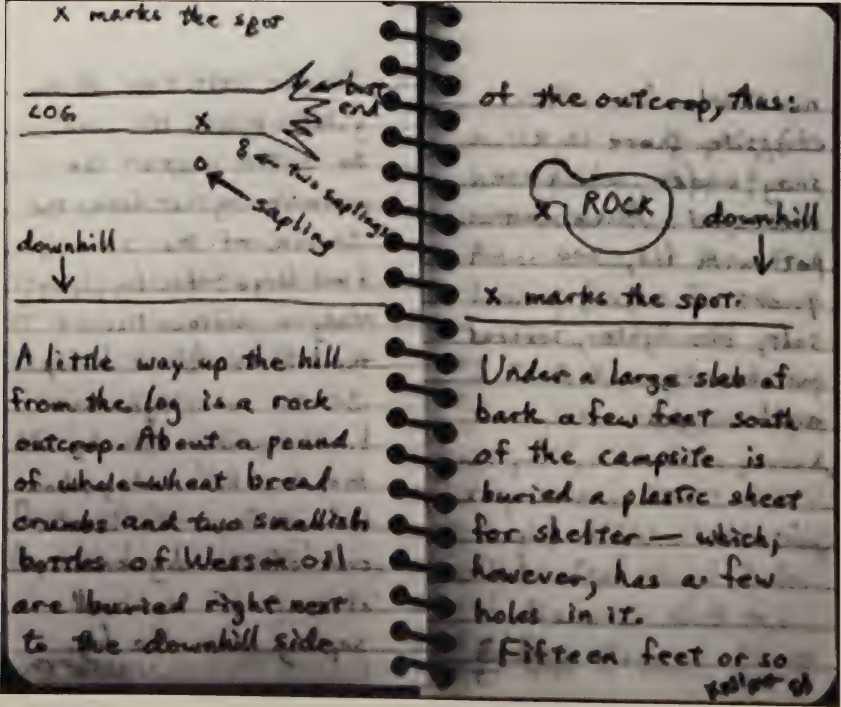 X marks the spot
butt
end
LOG
X
two saplings
sapling
downhill
A little way up the hill
from the log is a rock
outcrop. About a pound
of whole-wheat bread
crumbs and two smallish
bottles of Wesson oil
are buried right next
to the downhill side
of the outcrop, thus:
ROCK
X
downhill
X marks the spot.
Under a large slab of
bark a few feet south
of the campsite is
buried a plastic sheet
for shelter — which,
however, has a few
holes in it.
Fifteen feet or so